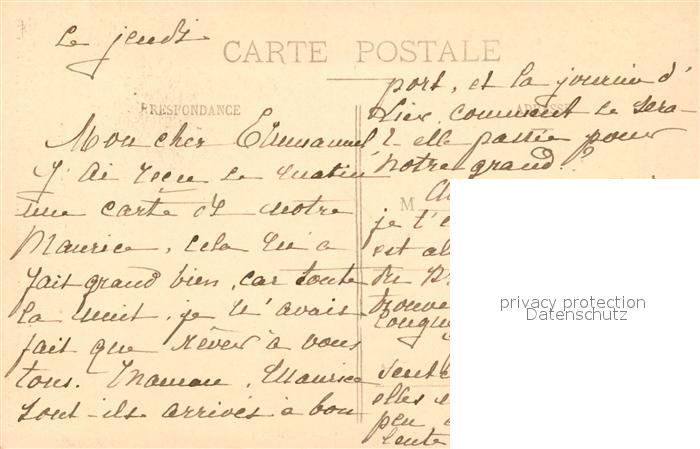 Le jeudi
CARTE POSTALE
RRESPONDANCE
ADRESSE
Mon cher Emmanuel
J'ai reçu ce matin
une carte de notre
Maurice, cela m'a
fait grand bien, car toute
la nuit, je n'avais
fait que rêver à vous
tous. Maman, Maurice
sont-ils arrivés à bon
port, et la journée d'
hier comment se sera-
t-elle passée pour
notre grand?
M
je t'e
est al
du
trouve
longue
sent
elles
peu
lente
privacy protection
Datenschutz